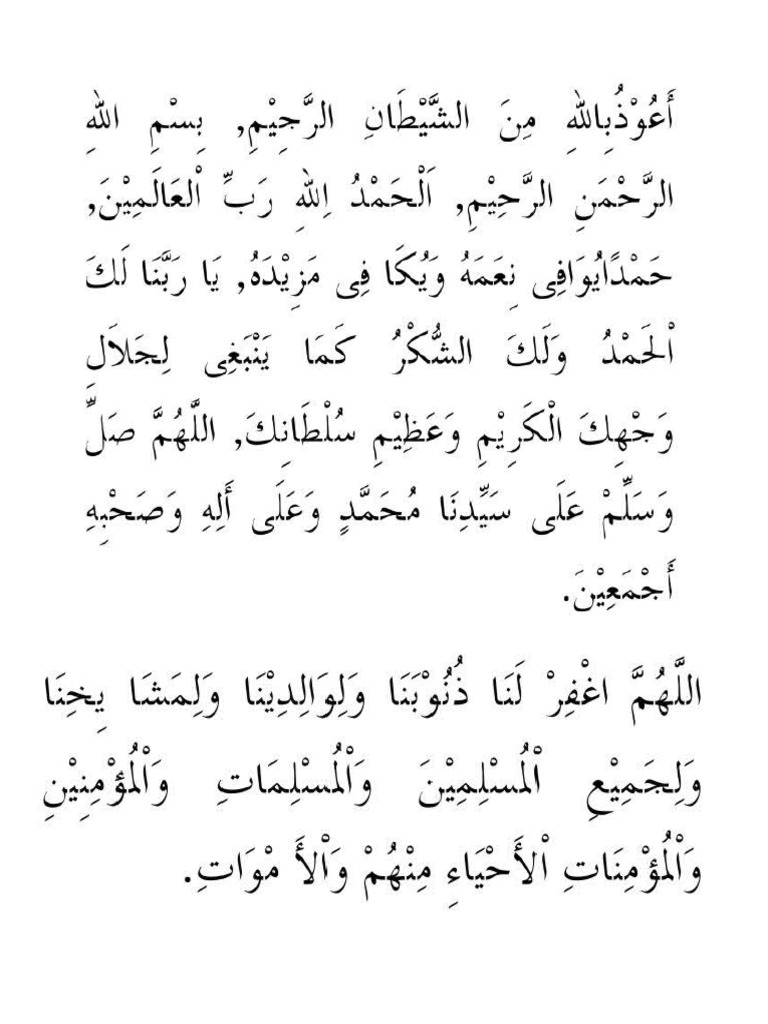 أَعُوْذُبِاللهِ مِنَ الشَّيْطَانِ الرَّجِيْمِ, بِسْمِ اللهِ
الرَّحْمَنِ الرَّحِيْمِ, اَلْحَمْدُ اِللهِ رَبِّ اْلعَالَمِيْنَ,
حَمْدًايُوَافِى نِعَمَهُ وَيُكَا فِى مَزِيْدَهُ, يَا رَبَّنَا لَكَ
اْلحَمْدُ وَلَكَ الشُّكْرُ كَمَا يَنْبَغِى لِجَلاَلِ
وَجْهِكَ الْكَرِيْمِ وَعَظِيْمِ سُلْطَانِكَ, اللَّهُمَّ صَلِّ
وَسَلِّمْ عَلَى سَيِّدِنَا مُحَمَّدٍ وَعَلَى أَلِهِ وَصَحْبِهِ
أَجْمَعِيْنَ.
اللَّهُمَّ اغْفِرْ لَنَا ذُنُوْبَنَا وَلِوَالِدِيْنَا وَلِمَشَا يِخِنَا
وَلِجَمِيْعِ اْلمُسْلِمِيْنَ وَاْلمُسْلِمَاتِ وَاْلمُؤْمِنِيْنِ
وَاْلمُؤْمِنَاتِ اْلأَحْيَاءِ مِنْهُمْ وَاْلأَ مْوَاتِ.